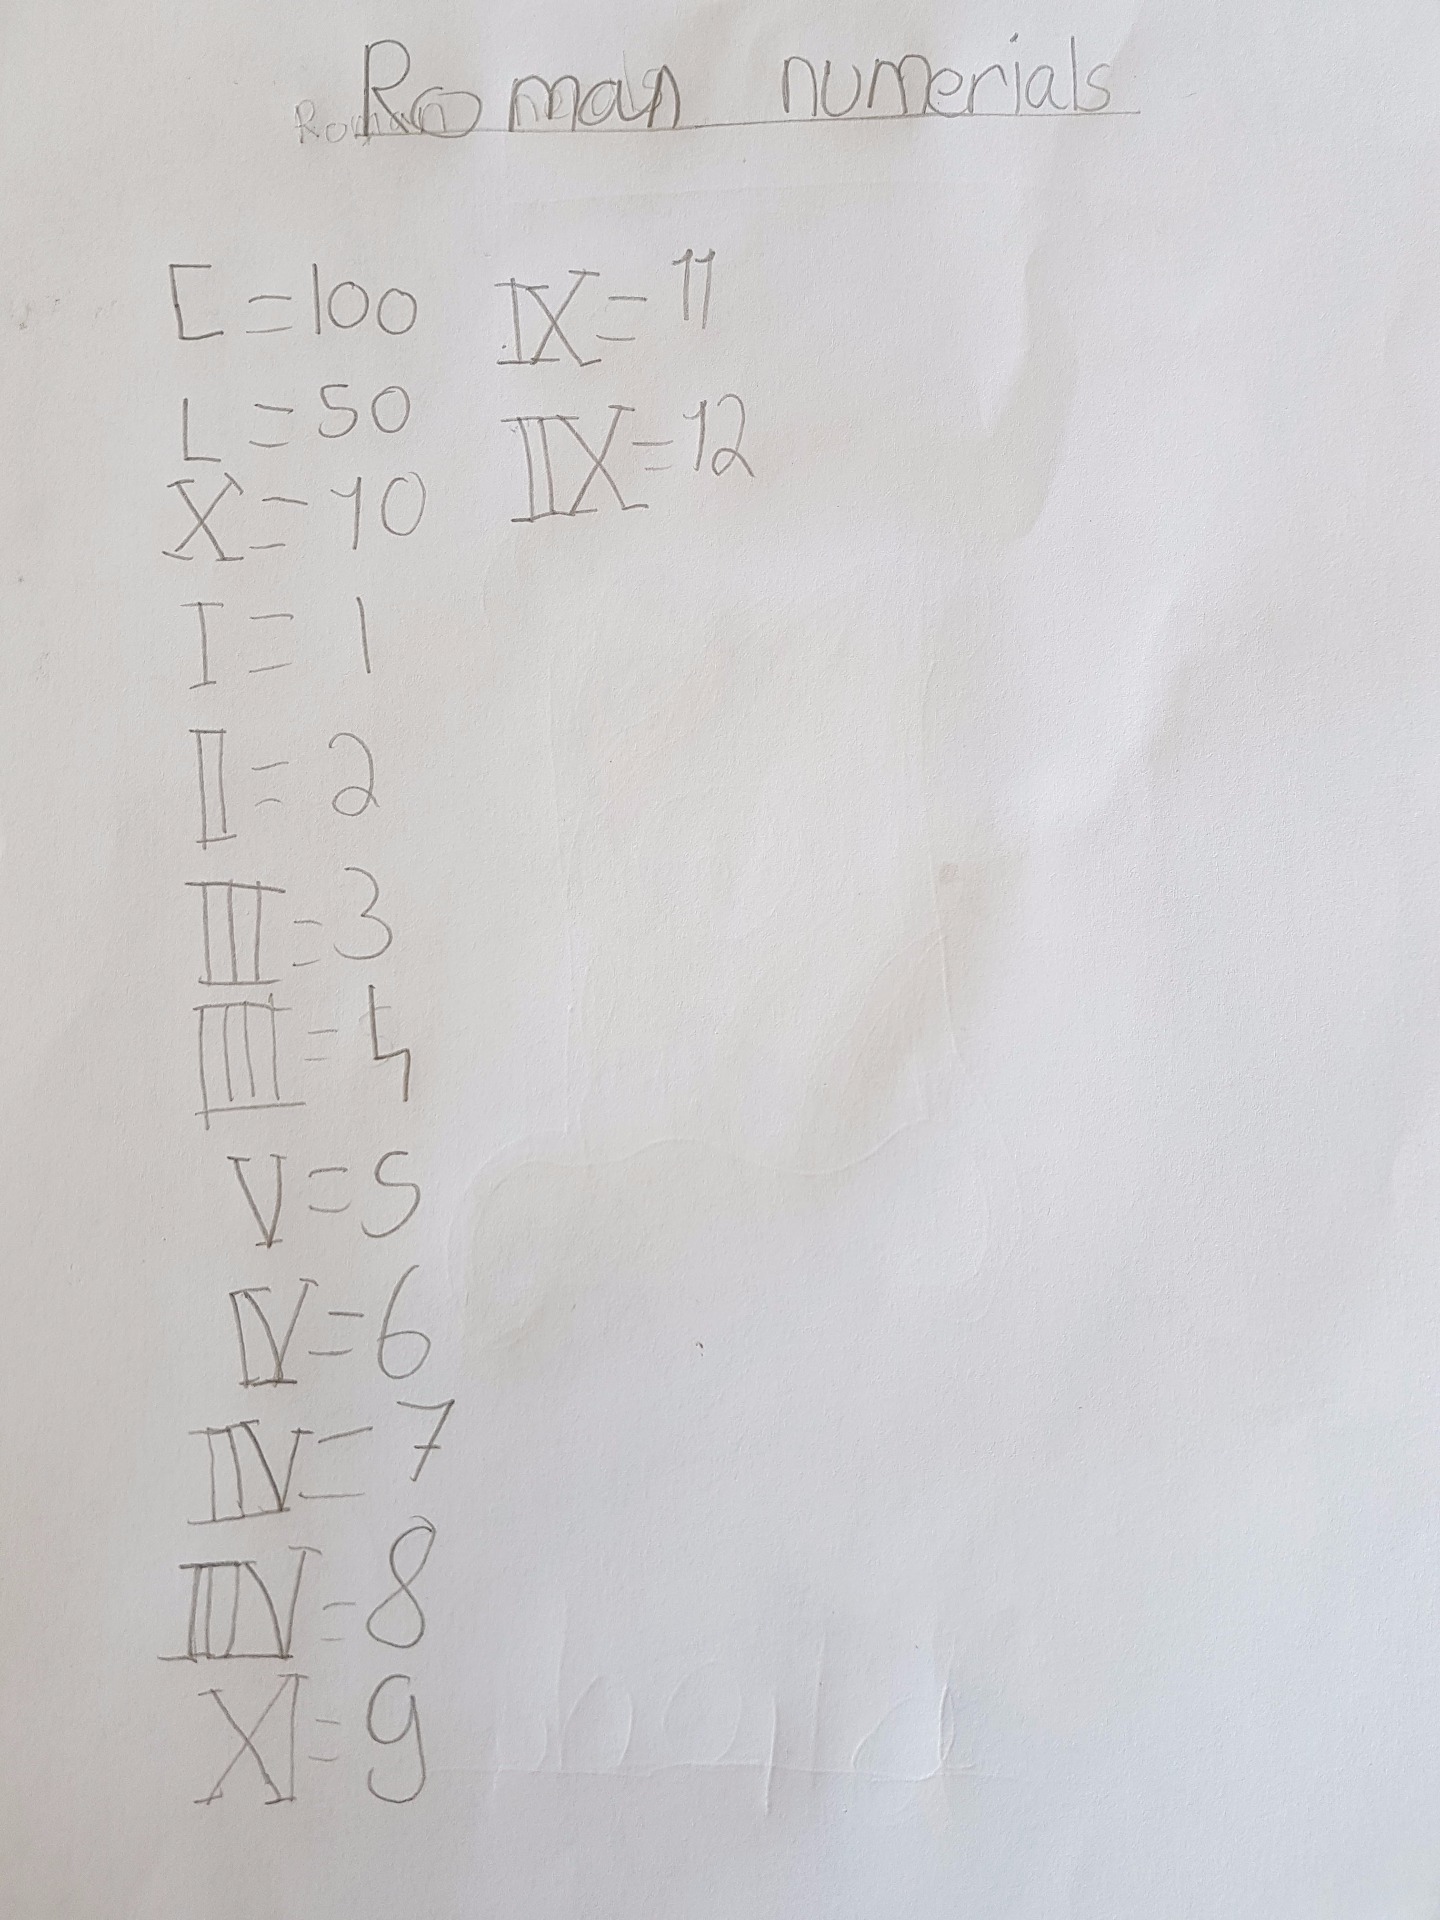 Roman numerials
C = 100
L = 50
X = 10
I = 1
II = 2
III = 3
IIII = 4
V = 5
IV = 6
IIV = 7
IIIV = 8
XI = 9
IX = 11
IIX = 12